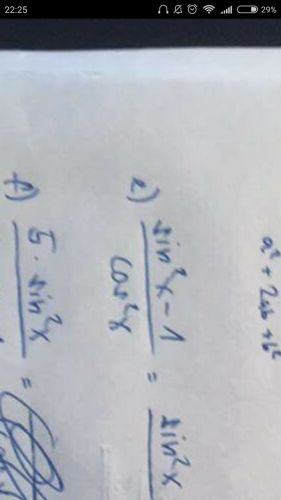 22:25
29%
a² + 2ab + b²
e) sin²x - 1 / cos²x = sin²x
f) 5 · sin²x =